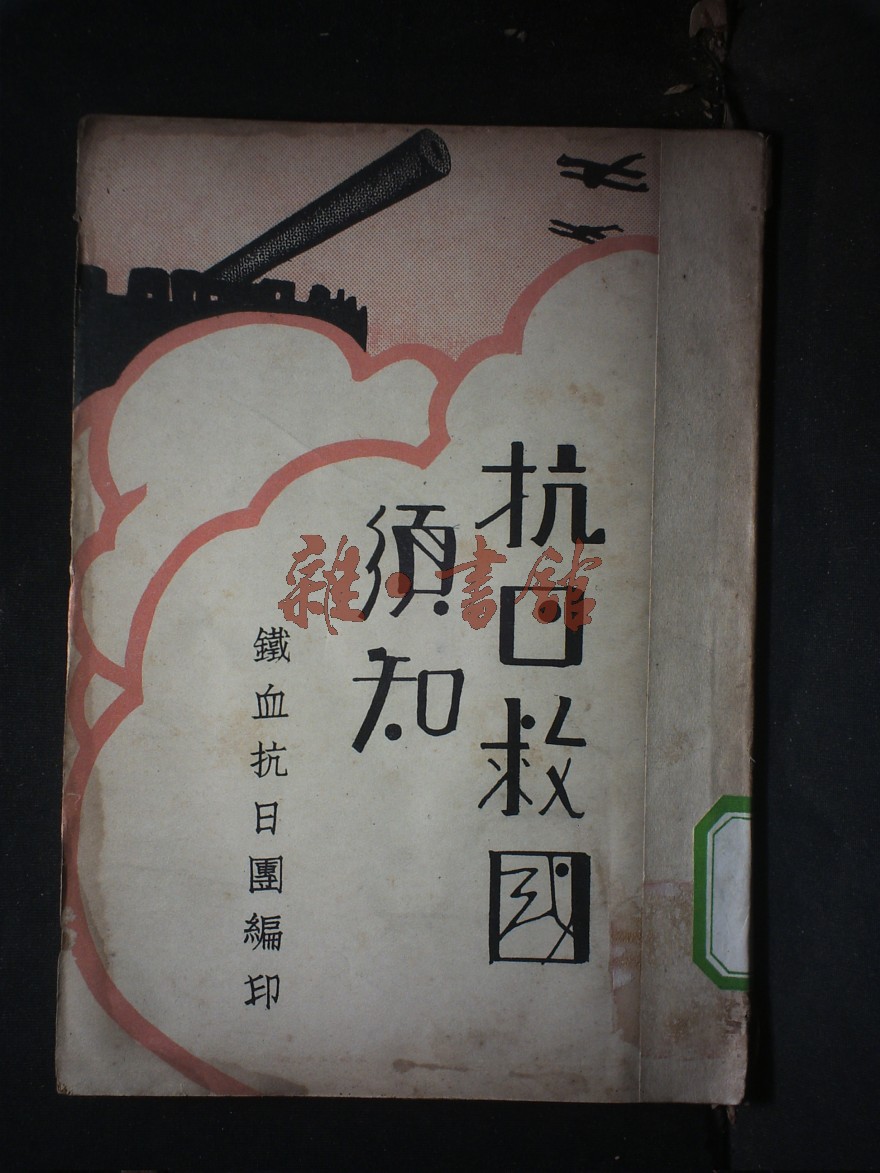 抗日救國
須知
鐵血抗日團編印
雜·書館